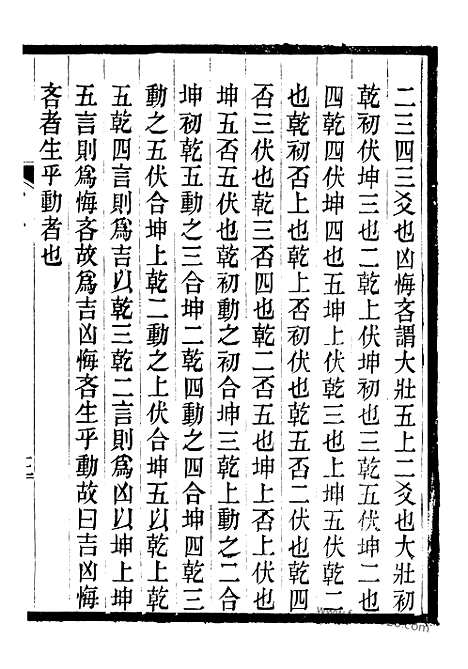 二三四三爻也凶悔吝謂大壯五上二爻也大壯初
乾初伏坤三也二乾上伏坤初也三乾五伏坤二也
四乾四伏坤四也五坤上伏乾三也上坤五伏乾二
也乾初否上也乾上否初伏也乾五否二伏也乾四
否三伏也乾三否四也乾二否五也坤上否上伏也
坤五否五伏也乾初動之初合坤三乾上動之二合
坤初乾五動之三合坤二乾四動之四合坤四乾三
動之五伏合坤上乾二動之上伏合坤五以乾上乾
五乾四言則爲吉以乾三乾二言則爲凶以坤上坤
五言則爲悔吝故爲吉凶悔吝生乎動故曰吉凶悔
吝者生乎動者也